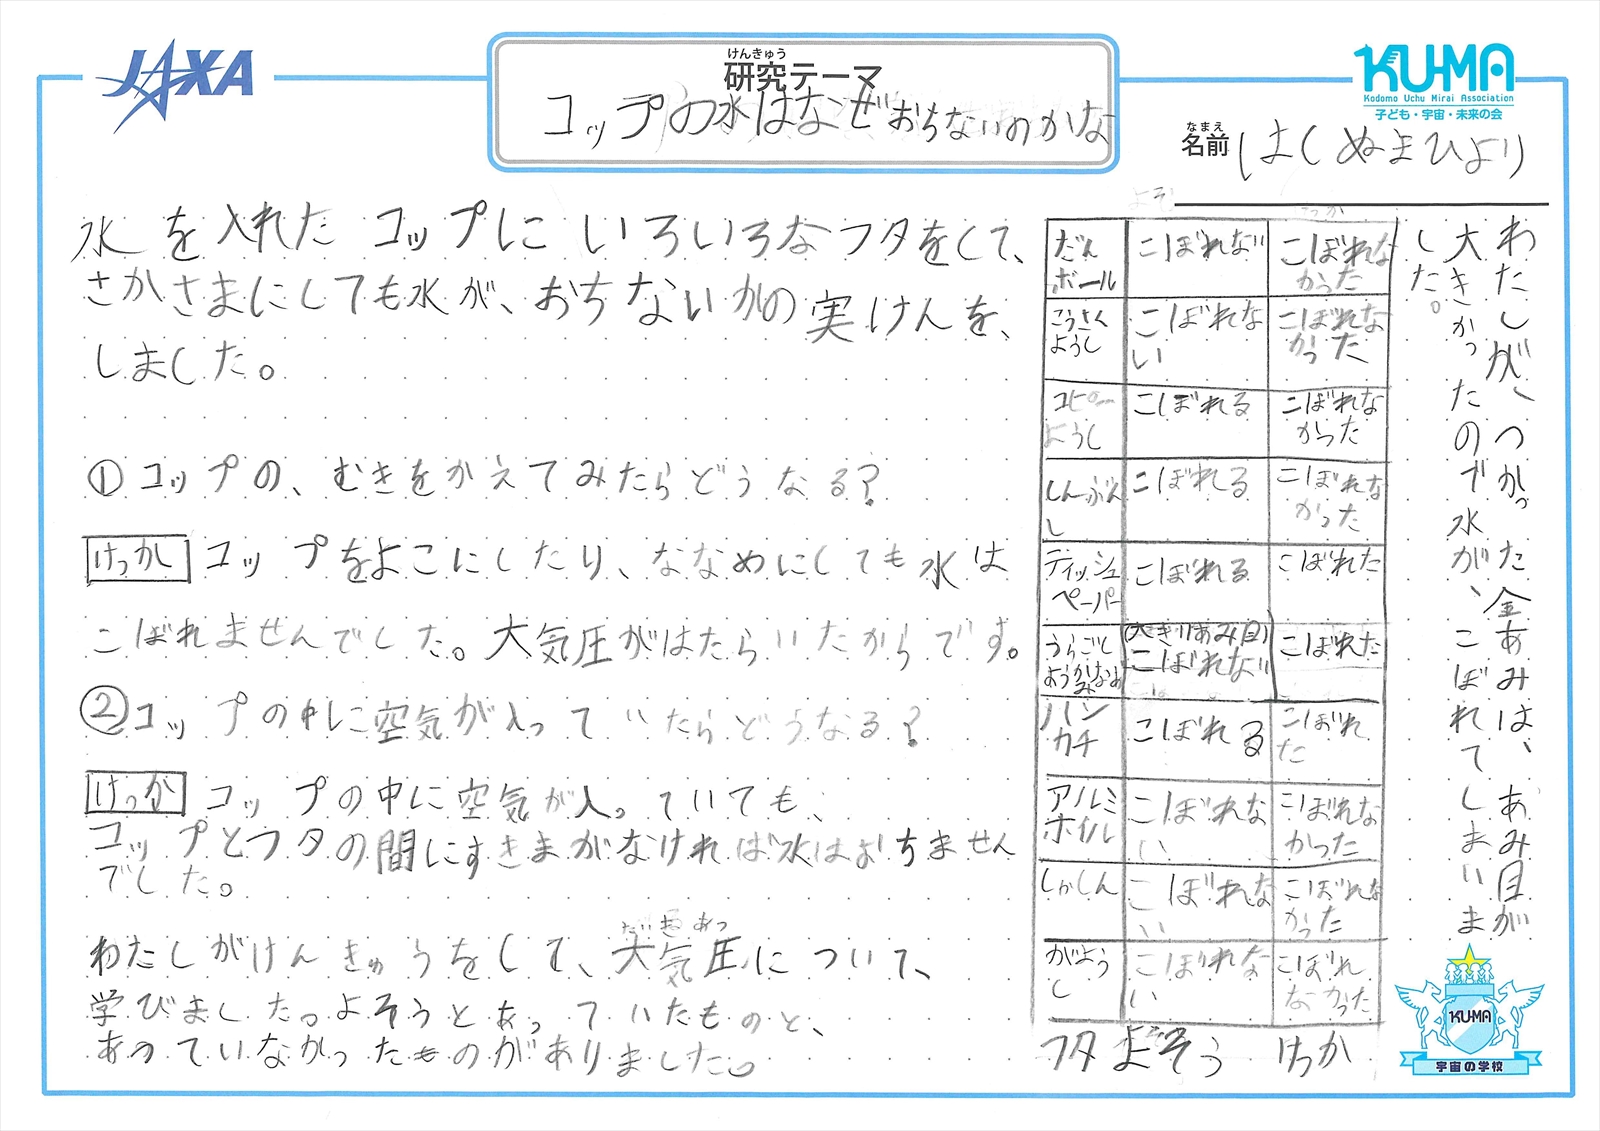 JAXA
けんきゅう
研究テーマ
コップの水はなぜおちないのかな
KUMA
Kodomo Uchu Mirai Association
子ども・宇宙・未来の会
なまえ
名前 はしぬまひより
水を入れたコップにいろいろなフタをして、
さかさまにしても水が、おちないかの実けんを、
しました。
①コップの、むきをかえてみたらどうなる?
けっか コップをよこにしたり、ななめにしても水は
こぼれませんでした。大気圧がはたらいたからです。
②コップの中に空気が入っていたらどうなる?
けっか コップの中に空気が入っていても、
コップとフタの間にすきまがなければ水はおちません
でした。
わたしがけんきゅうをして、大気圧について、
学びました。よそうとあっていたものと、
あっていなかったものがありました。
だん
ボール
こぼれない
こぼれな
かった
こうさく
ようし
こぼれな
い
こぼれな
かった
コピー
ようし
こぼれる
こぼれな
かった
しんぶん
し
こぼれる
こぼれな
かった
ティッシュ
ペーパー
こぼれる
こぼれた
うらごし
(大きいあみ目)
こぼれない
こぼれた
ハン
カチ
こぼれる
こぼれ
た
アルミ
ホイル
こぼれな
い
こぼれな
かった
しゃしん
こぼれな
い
こぼれな
かった
がよう
し
こぼれな
い
こぼれ
なかった
フタ よそう けっか
わたしが、つかった金あみは、あみ目が
大きかったので水が、こぼれてしまいま
した。
KUMA
宇宙の学校